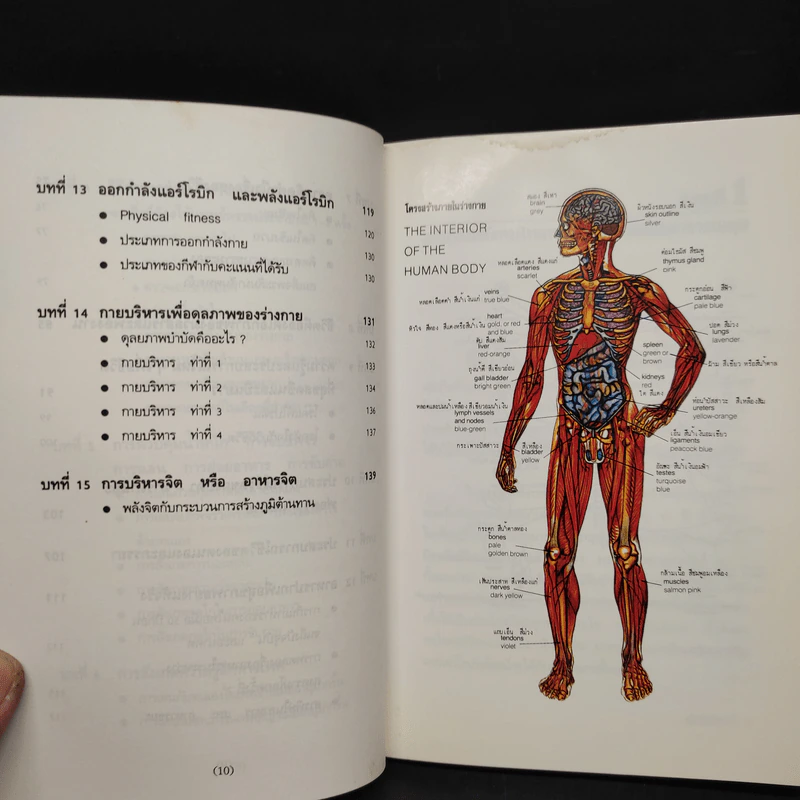 บทที่ 13 ออกกำลังแอร์โรบิก และพลังแอร์โรบิก 119
● Physical fitness 120
● ประเภทการออกกำลังกาย 130
● ประเภทของกีฬากับคะแนนที่ได้รับ 130
บทที่ 14 กายบริหารเพื่อดุลภาพของร่างกาย 131
● ดุลยภาพบำบัดคืออะไร ? 132
● กายบริหาร ท่าที่ 1 133
● กายบริหาร ท่าที่ 2 134
● กายบริหาร ท่าที่ 3 136
● กายบริหาร ท่าที่ 4 137
บทที่ 15 การบริหารจิต หรือ อาหารจิต 139
● พลังจิตกับกระบวนการสร้างภูมิต้านทาน
(10)
โครงสร้างภายในร่างกาย
THE INTERIOR
OF THE
HUMAN BODY
สมอง สีเทา
brain
grey
หลอดเลือดแดง สีแดงแก่
arteries
scarlet
หลอดเลือดดำ สีน้ำเงินแก่
veins
true blue
หัวใจ สีทอง สีแดงหรือสีน้ำเงิน
heart
gold. or red
and blue
ตับ สีแดงส้ม
liver
red-orange
ถุงน้ำดี สีเขียวอ่อน
gall bladder
bright green
หลอดและปมน้ำเหลือง สีเขียวอมน้ำเงิน
lymph vessels
and nodes
blue-green
กระเพาะปัสสาวะ สีเหลือง
bladder
yellow
กระดูก สีน้ำตาลทอง
bones
pale
golden brown
เส้นประสาท สีเหลืองแก่
nerves
dark yellow
แผ่นเอ็น สีม่วง
tendons
violet
ผิวหนังรอบนอก สีเงิน
skin outline
silver
ต่อมไธมัส สีชมพู
thymus gland
pink
กระดูกอ่อน สีฟ้า
cartilage
pale blue
ปอด สีม่วง
lungs
lavender
spleen
green or
brown
ม้าม สีเขียว หรือสีน้ำตาล
kidneys
red
ไต สีแดง
ท่อปัสสาวะ สีเหลืองส้ม
ureters
yellow-orange
เอ็น สีน้ำเงินอมเขียว
ligaments
peacock blue
อัณฑะ สีน้ำเงินอมฟ้า
testes
turquoise
blue
กล้ามเนื้อ สีชมพูอมเหลือง
muscles
salmon pink